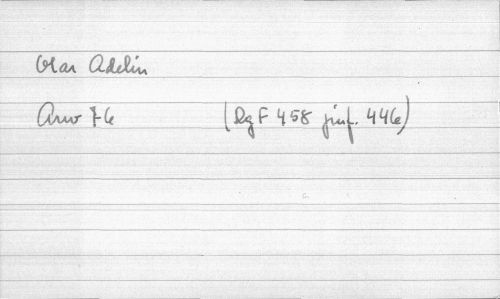 Olar Adelin
Arw 76 (Dg F 458 jmf. 446)